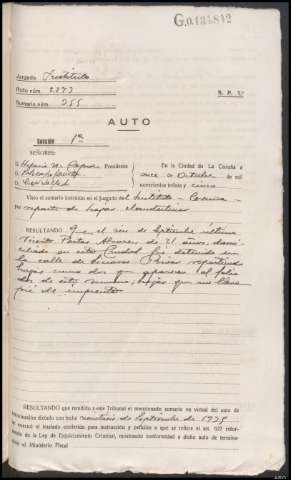 G.0.134.842
Juzgado Instituto
Rollo núm. 2873
Sumario núm. 255
R. P. 1.º
AUTO
Sección 1ª
SEÑORES:
D. Presidente
D.
D.
En la Ciudad de La Coruña a
once de Octubre de mil
novecientos treinta y cinco
Visto el sumario instruido en el Juzgado de Instituto - Coruña -
reparto de hojas clandestinas
RESULTANDO Que el seis de Septiembre último
Vicente Portas Alvarez de 21 años, domi
ciliado en esta Ciudad fué detenido en
la calle de repartiendo
hojas como dos q aparecen al folio
dos de este sumario, hojas que no llevan
pié de imprenta
RESULTANDO que remitido a este Tribunal el mencionado sumario en virtud del auto de
terminación dictado con fecha de Septiembre de 1935
se evacuó el traslado conferido para instrucción y petición a que se refiere el art. 627 refor-
mado de la Ley de Enjuiciamiento Criminal, mostrando conformidad a dicho auto de termina-
ción el Ministerio Fiscal